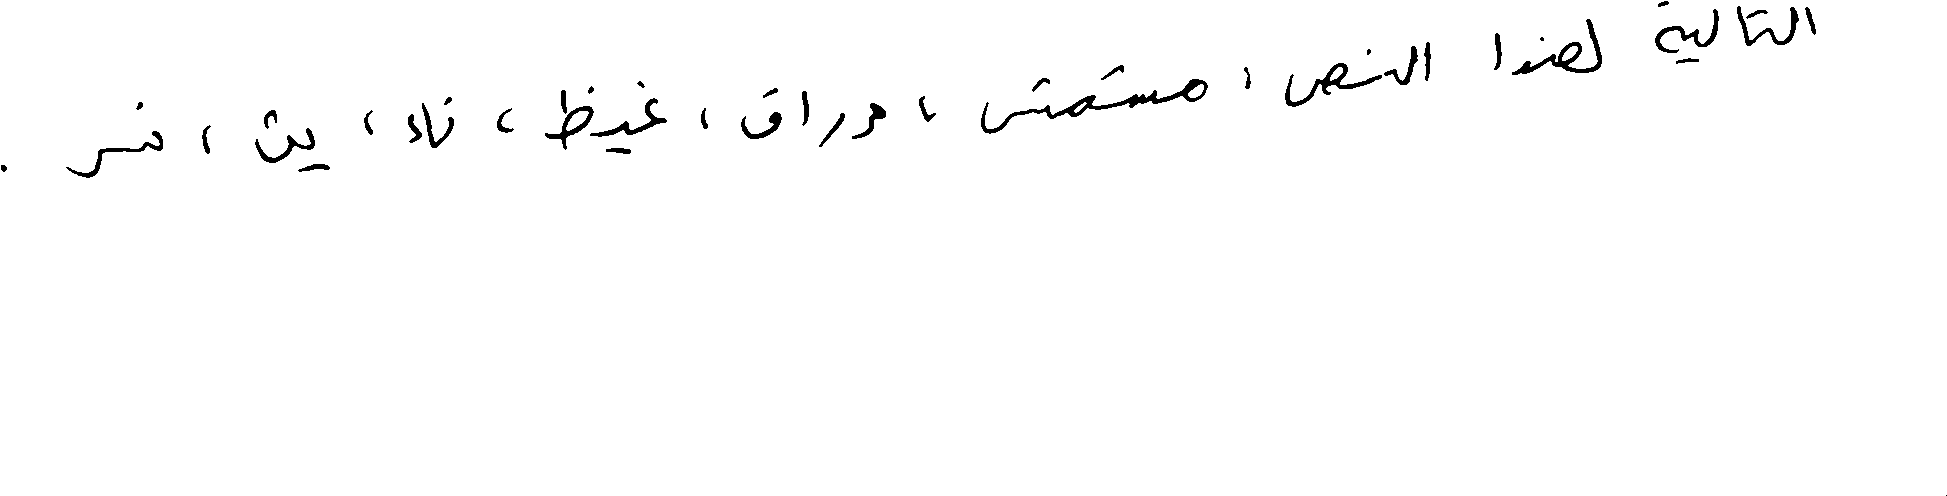 التالية لهذا النص ، مستمتس ، دراق ، غيظ ، ناد ، يث ، نسر .